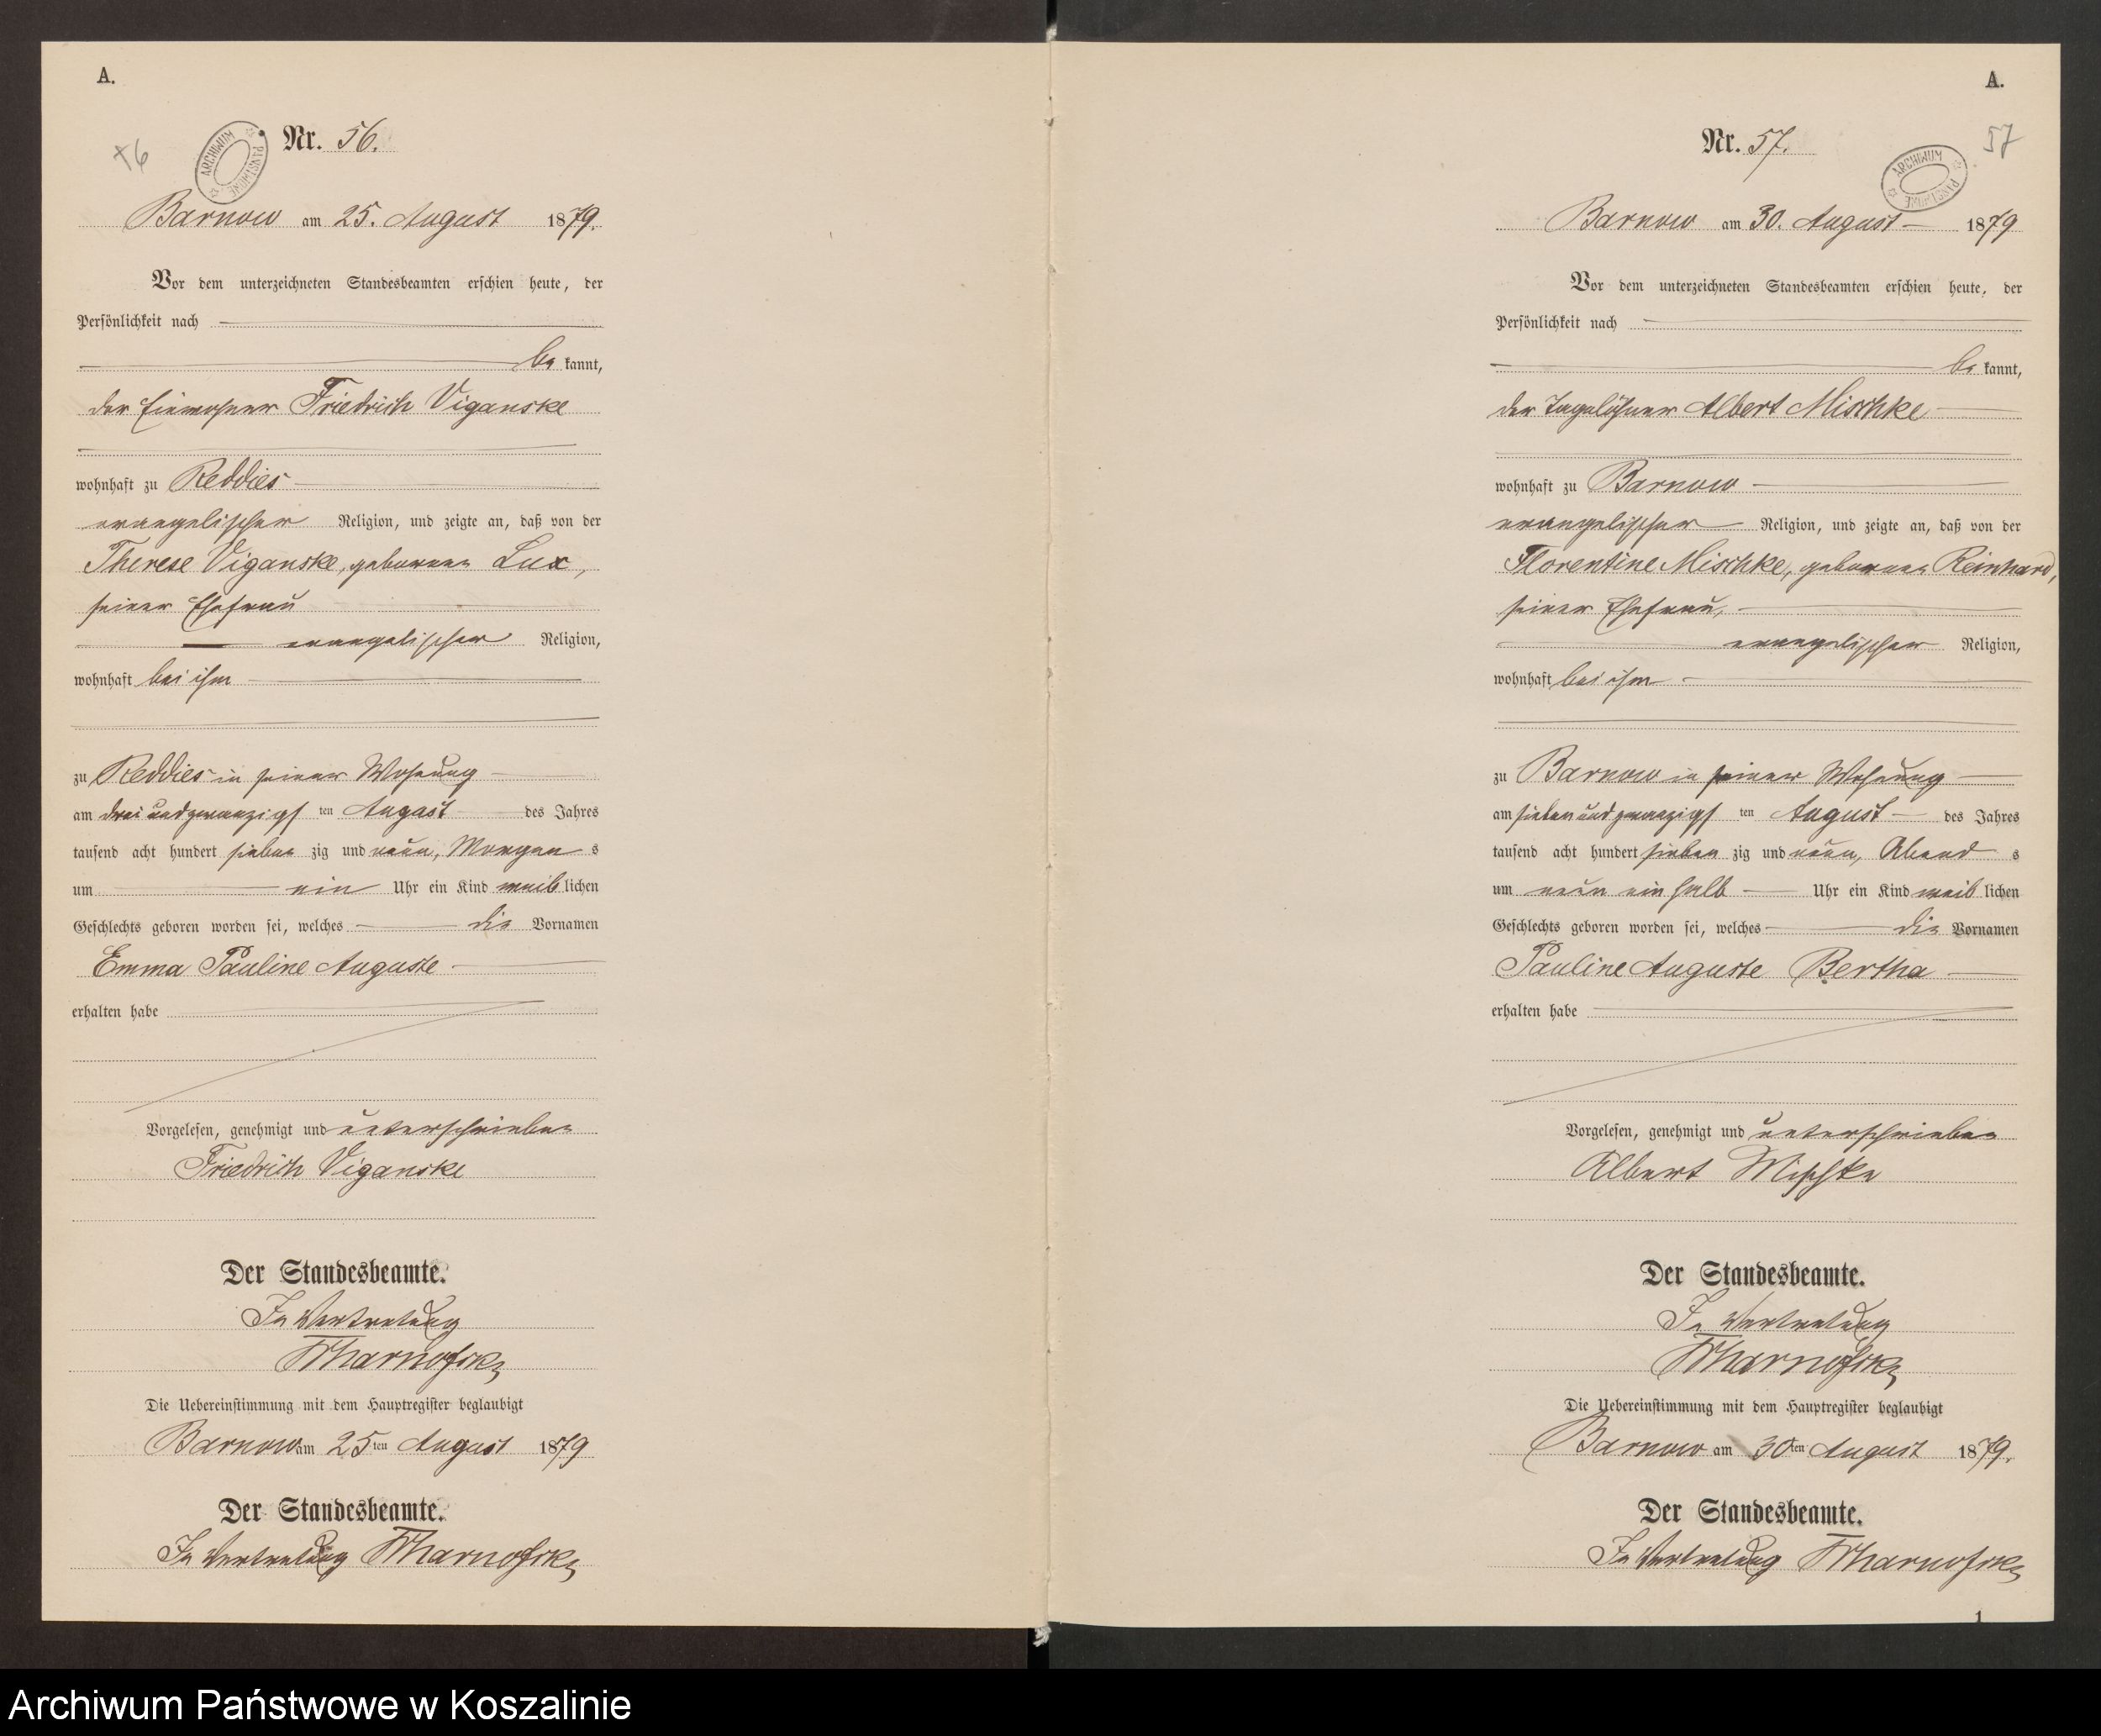 A.
Nr. 56.
56
ARCHIWUM PAŃSTWOWE
Barnow am 25. August 1879.
Vor dem unterzeichneten Standesbeamten erschien heute, der
Persönlichkeit nach
be kannt,
der Einwohner Friedrich Viganske
wohnhaft zu Reddies
evangelischer Religion, und zeigte an, daß von der
Therese Viganske, geborenen Lux,
seiner Ehefrau
evangelischer Religion,
wohnhaft bei ihm
zu Reddies in seiner Wohnung
am drei und zwanzigs ten August des Jahres
tausend acht hundert sieben zig und neun, Morgen s
um ein Uhr ein Kind weib lichen
Geschlechts geboren worden sei, welches die Vornamen
Emma Pauline Auguste
erhalten habe
Vorgelesen, genehmigt und unterschrieben
Friedrich Viganske
Der Standesbeamte.
In Vertretung
Die Uebereinstimmung mit dem Hauptregister beglaubigt
Barnow am 25 ten August 1879
Der Standesbeamte.
In Vertretung
A.
Nr. 57.
57
ARCHIWUM PAŃSTWOWE
Barnow am 30. August 1879
Vor dem unterzeichneten Standesbeamten erschien heute, der
Persönlichkeit nach
be kannt,
der Tagelöhner Albert Mischke
wohnhaft zu Barnow
evangelischer Religion, und zeigte an, daß von der
Florentine Mischke, geborenen Reinhard,
seiner Ehefrau,
evangelischer Religion,
wohnhaft bei ihm
zu Barnow in seiner Wohnung
am sieben und zwanzigs ten August des Jahres
tausend acht hundert sieben zig und neun, Abend s
um neun ein halb Uhr ein Kind weib lichen
Geschlechts geboren worden sei, welches die Vornamen
Pauline Auguste Bertha
erhalten habe
Vorgelesen, genehmigt und unterschrieben
Albert Mischke
Der Standesbeamte.
In Vertretung
Die Uebereinstimmung mit dem Hauptregister beglaubigt
Barnow am 30 ten August 1879.
Der Standesbeamte.
In Vertretung
1
Archiwum Państwowe w Koszalinie